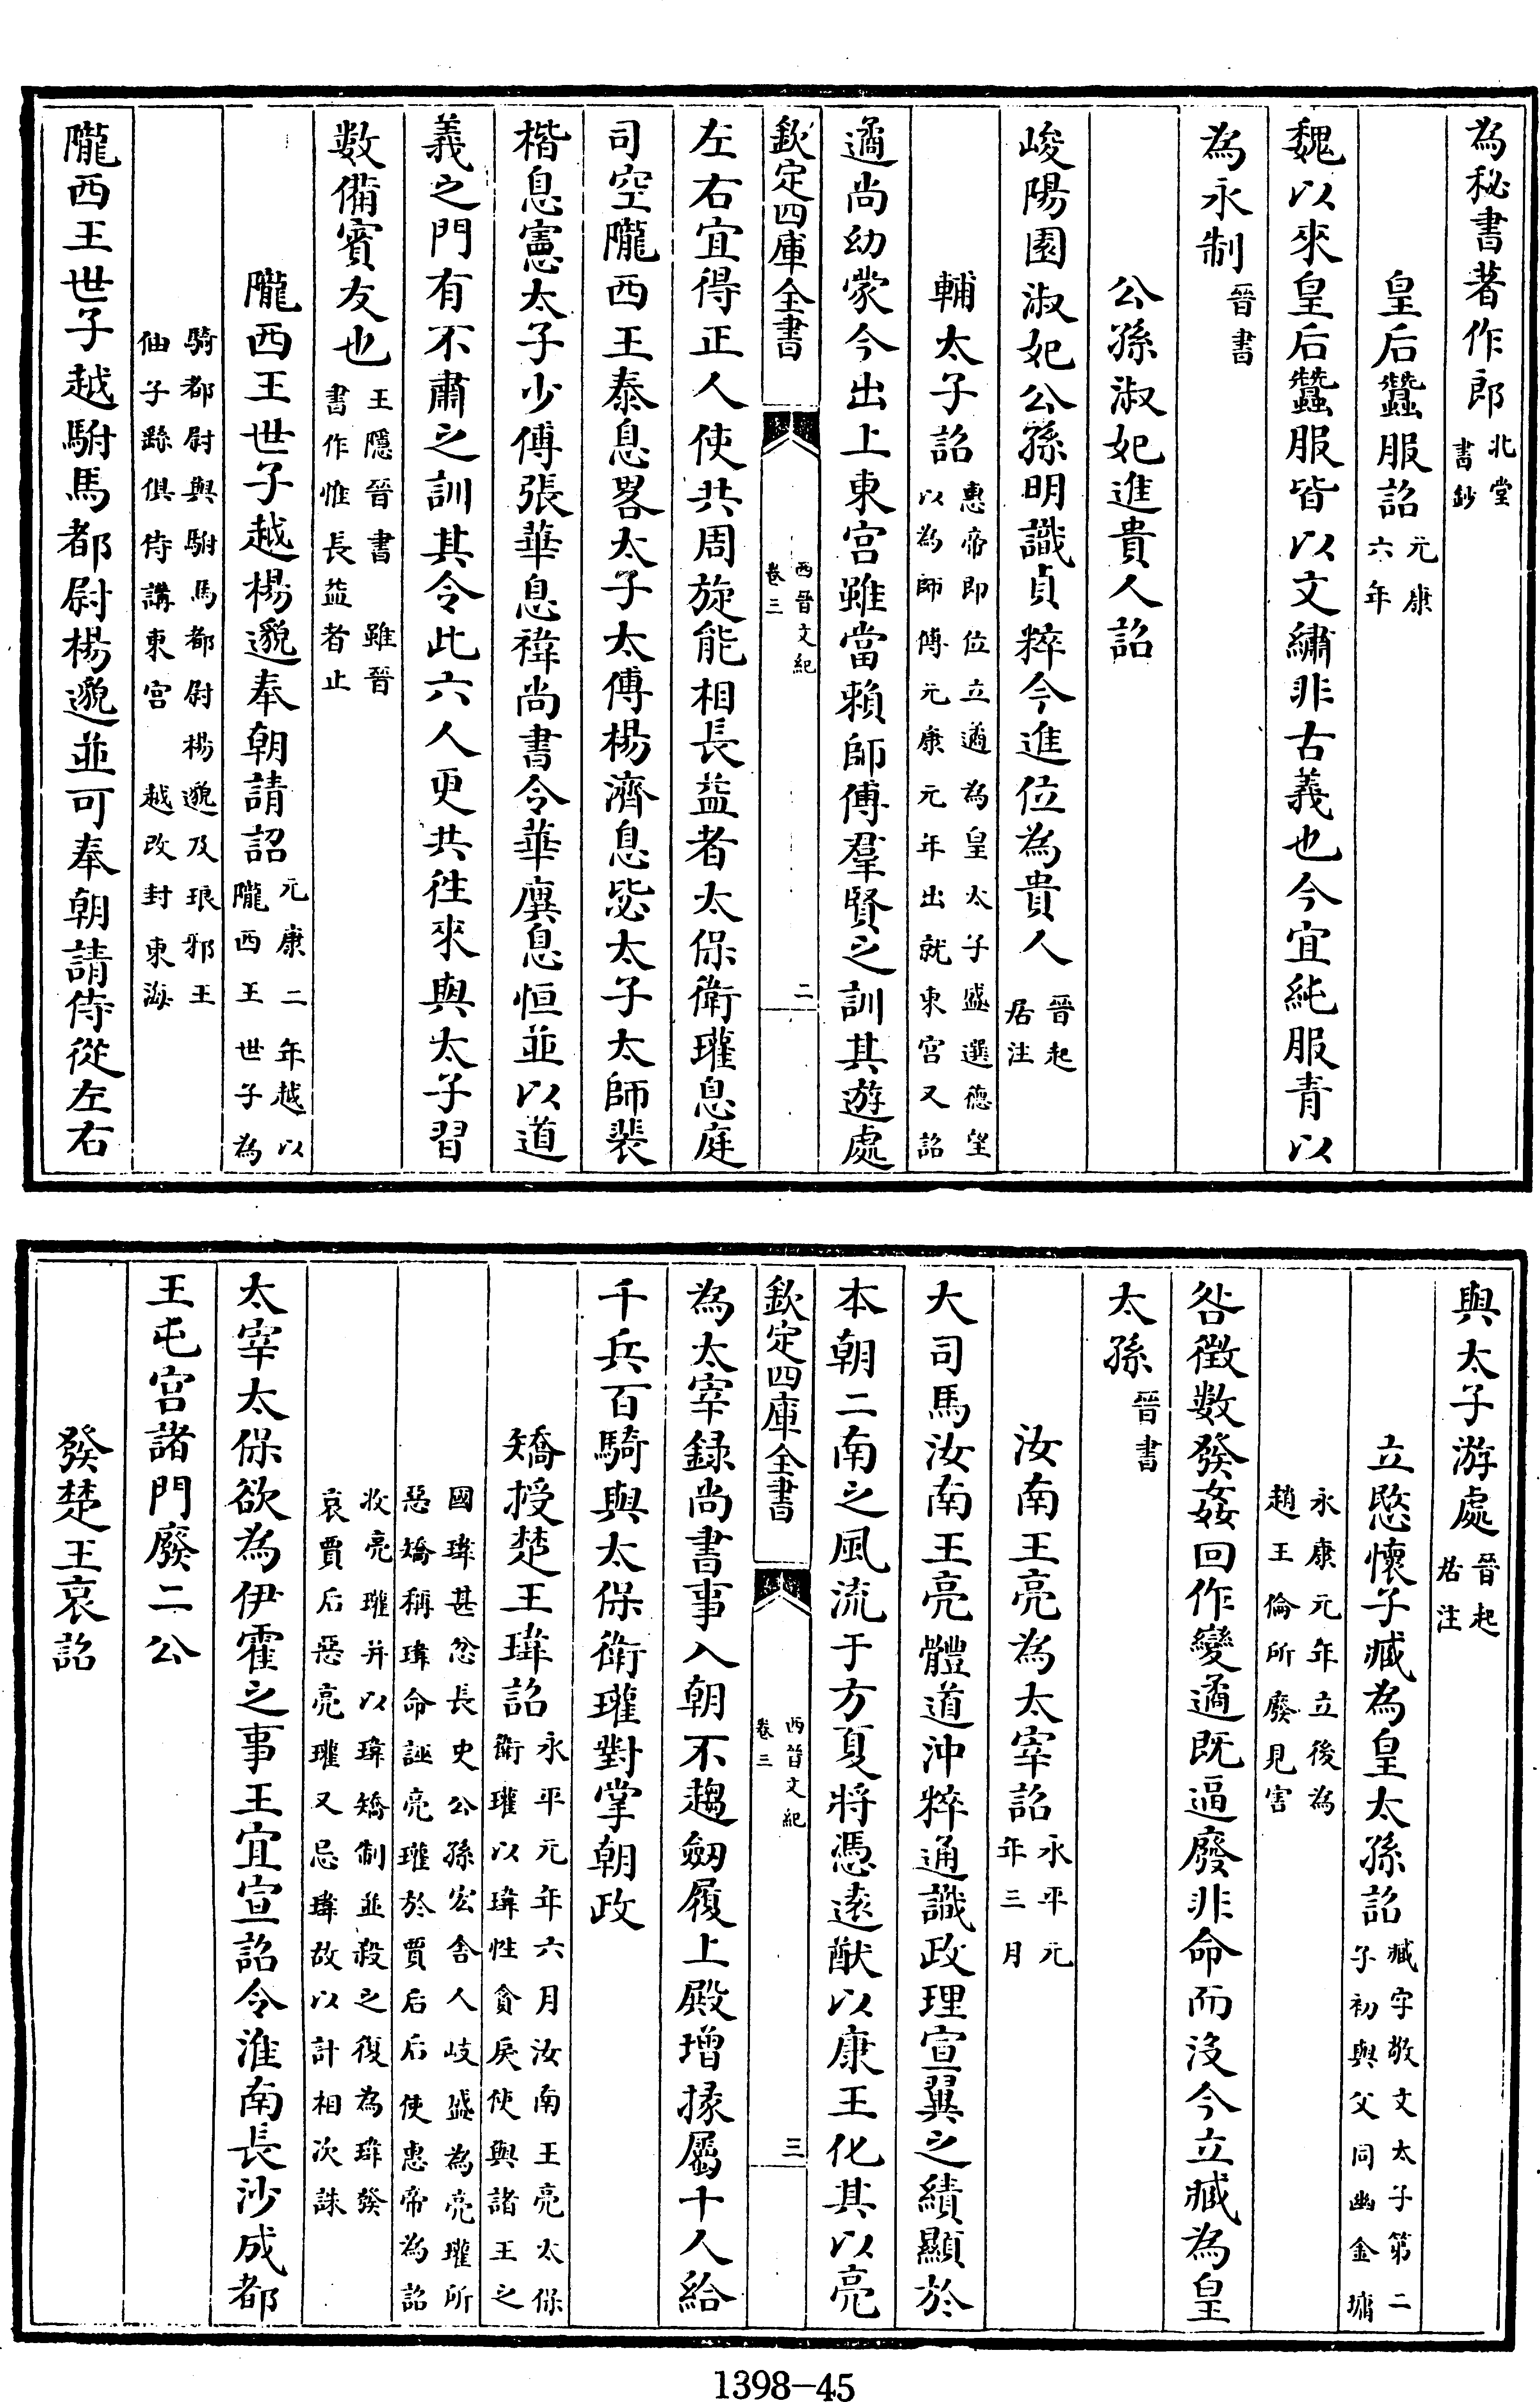 為秘書著作郎北堂書鈔
皇后蠶服詔元康六年
魏以來皇后蠶服皆以文繡非古義也今宜純服青以
為永制晉書
公孫淑妃進貴人詔
峻陽園淑妃公孫明識貞粹今進位為貴人晉起居注
輔太子詔惠帝即位立遹為皇太子盛選德望以為師傅元康元年出就東宮又詔
遹尚幼蒙今出上東宮雖當賴師傅羣賢之訓其遊處
欽定四庫全書
西晉文紀
卷三
二
左右宜得正人使共周旋能相長益者太保衛瓘息庭
司空隴西王泰息畧太子太傅楊濟息毖太子太師裴
楷息憲太子少傅張華息禕尚書令華廙息恒並以道
義之門有不肅之訓其令此六人更共往來與太子習
數備賓友也王隱晉書 雖晉書作惟長益者止
隴西王世子越楊邈奉朝請詔元康二年越以隴西王世子為
騎都尉與駙馬都尉楊邈及琅邪王伷子繇俱侍講東宮 越改封東海
隴西王世子越駙馬都尉楊邈並可奉朝請侍從左右
與太子游處晉起居注
立愍懷子臧為皇太孫詔臧字敬文太子第二子初與父同幽金墉
永康元年立後為趙王倫所廢見害
咎徴數發姦回作變遹既逼廢非命而没今立臧為皇
太孫晉書
汝南王亮為太宰詔永平元年三月
大司馬汝南王亮體道沖粹通識政理宣翼之績顯於
本朝二南之風流于方夏將憑遠猷以康王化其以亮
欽定四庫全書
西晉文紀
卷三
三
為太宰録尚書事入朝不趨劒履上殿增掾屬十人給
千兵百騎與太保衛瓘對掌朝政
矯授楚王瑋詔永平元年六月汝南王亮太保衛瓘以瑋性貪戾使與諸王之
國瑋甚忿長史公孫宏舍人岐盛為亮瓘所惡矯稱瑋命誣亮瓘於賈后后使惠帝為詔
收亮瓘并以瑋矯制並殺之復為瑋發哀賈后惡亮瓘又忌瑋故以計相次誅
太宰太保欲為伊霍之事王宜宣詔令淮南長沙成都
王屯宮諸門廢二公
發楚王哀詔
1398—45